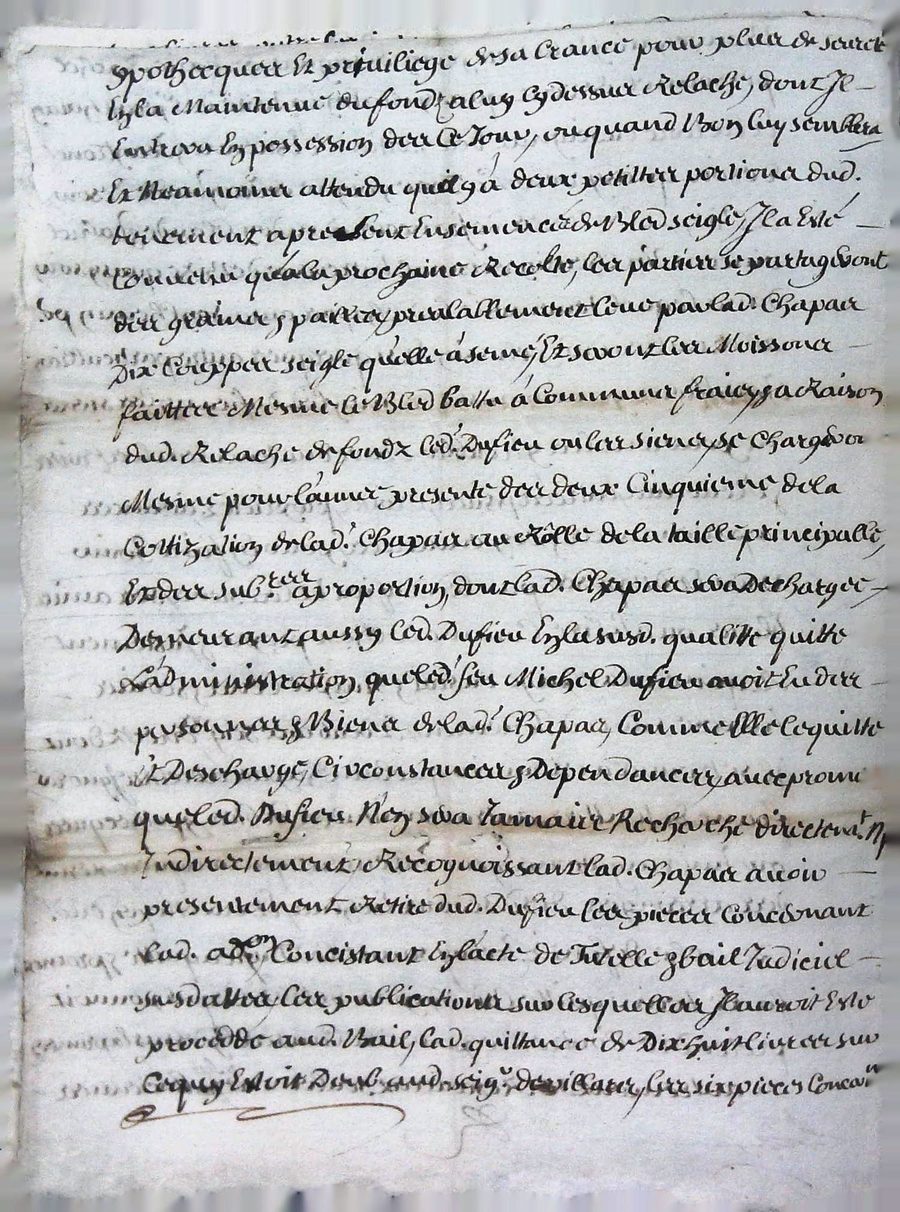 ypothecquer Et priuiliege de sa Creance pour plus de seurete
En la Maintenue du fondz a luy cy dessus Relaché, dont Il
Entrera En possession des Ce Jour, ou quand Bon luy semblera
Et Neamoins attendu quil y a deux petittes portions dud.
tenement apresent Ensemencé de Bled seigle, Il a Esté
Conuenu qua la prochaine Recolte, les parties se partageront
des grains, pailles, prealablement leué par lad. Chapas
Dix Couppes seigle qu'elle a semé, Et seront les Moissons
faittes Mesme le Bled battu a Communs fraicz, a Raison
dud. Relache de fondz led. Dufieu ou les siens, se Chargera
Mesme pour l'année presente des deux Cinquieme de la
Cottization de lad. Chapas au Rôlle de la taille principalle,
Et des sub.res a proportion, dont lad. Chapas sera Dechargée,
Demeurant aussy led. Dufieu En la susd. qualitte quitte
L'administration, que led. feu Michel Dufieu auoit Eu des
personnes & Biens de lad. Chapas, Comme Elle le quitte
Et Descharge, Circonstances & Dependances, auec promè
que led. Dufieu N'en sera Jamais Recherché directem.t Ny
Indirectement, Recognoissant lad. Chapas auoir
presentement Retiré dud. Dufieu les pieces Concernant
lad. ad.on Concistant En l'acte de Tutelle & bail Judiciel
susdattes, les publications sur lesquelles Il auroit Esté
procédé aud. Bail, lad. quittance de Dix huit liures sur
Ce quy Estoit Deub aud. seig.r de villars, les six pieces Concer.t